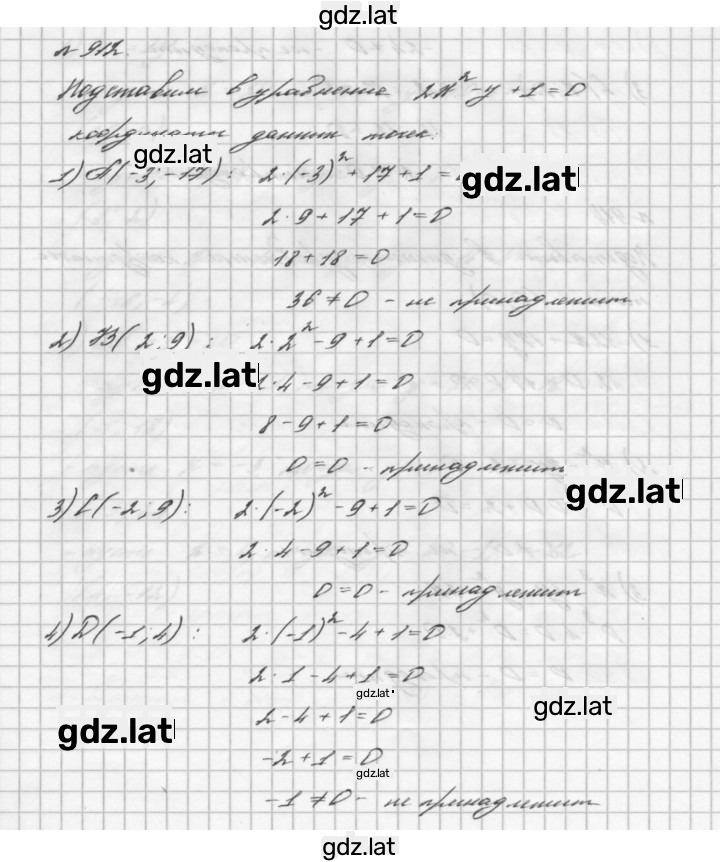 gdz.lat
№ 912.
Подставим в уравнение 2x² - y + 1 = 0
координаты данных точек:
gdz.lat
1) A(-3; -17) : 2·(-3)² + 17 + 1 =
gdz.lat
2·9 + 17 + 1 = 0
18 + 18 = 0
36 ≠ 0 - не принадлежит
2) B(2; 9) : 2·2² - 9 + 1 = 0
gdz.lat
·4 - 9 + 1 = 0
8 - 9 + 1 = 0
0 = 0 - принадлежит
gdz.lat
3) C(-2; 9) : 2·(-2)² - 9 + 1 = 0
2·4 - 9 + 1 = 0
0 = 0 - принадлежит
4) D(-1; 4) : 2·(-1)² - 4 + 1 = 0
2·1 - 4 + 1 = 0
gdz.lat
gdz.lat
2 - 4 + 1 = 0
gdz.lat
-2 + 1 = 0
gdz.lat
-1 ≠ 0 - не принадлежит
gdz.lat